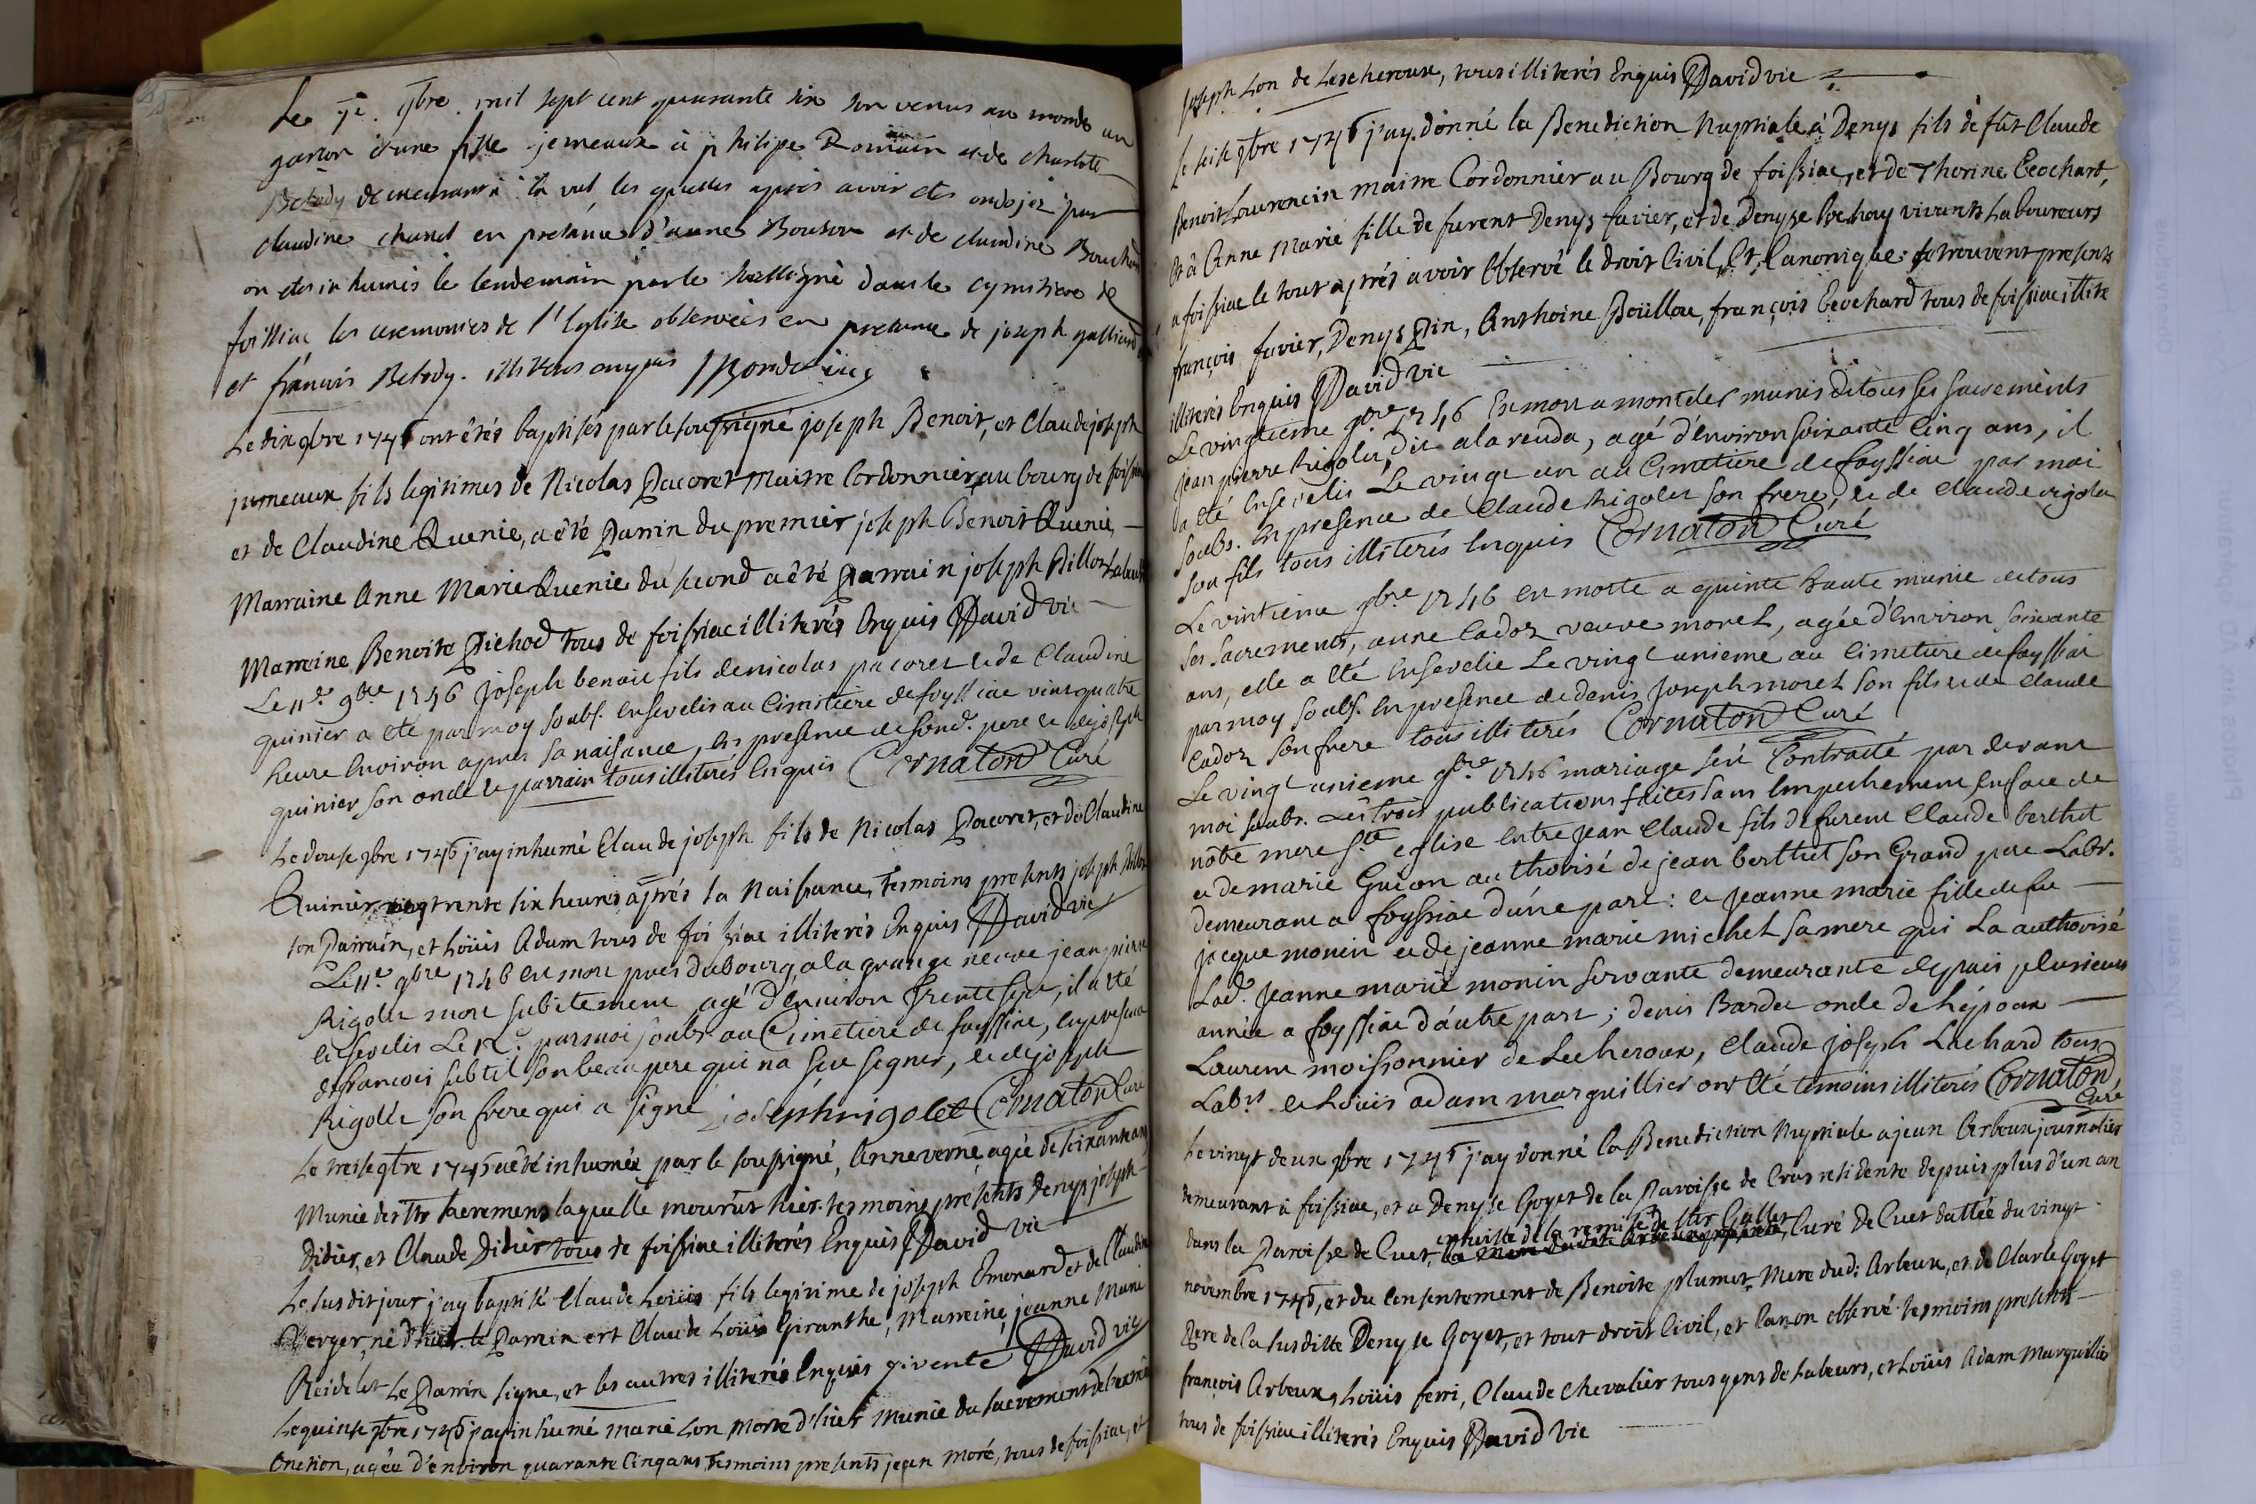 Le 7e. 9bre. mil sept cent quarante six son venus au monde un
garson et une fille jemeaux à philipe Romain et de charlotte
Belady demeurant à la val les quelles après avoir etes ondojez par
claudine chanel en presance d'anne Bouton et de claudine Bouchard
on etes inhumés le lendemain par le soussigné dans le cymitiere de
foissiac les ceremonies de l'Eglise observées en presance de joseph galliard
et francois Belady. illiteres enquis
Le dix 9bre 1746 ont êtés baptisés par le soussigné joseph Benoit, et Claude joseph
jumeaux fils legitimes de Nicolas Pacoret Maitre Cordonnier au bourg de foissiac
et de Claudine Quenie, a êté Parrin du premier joseph Benoit Quenie,
Marraine Anne Marie Quenie du second a êté Parrain joseph Dillon
Marreine Benoite Pichod tous de foissiac illiterés Enquis David vic
Le 11e. 9bre 1746 Joseph benoit fils de nicolas pacoret et de Claudine
quinier a eté par moy soubs. ensevelis au Cimitiere de foyssiac vint quatre
heure environ apres sa naisance, en presence de son d. pere et de joseph
quinier son oncle et parrain tous illiterés enquis Cornaton Curé
Le douse 9bre 1746 j'ay inhumé Claude joseph fils de Nicolas Pacoret, et de Claudine
Quinier trente six heures après sa Naissance, Tesmoins presents joseph Dillon
son Parrain, et Loüis Adam tous de foissiac illiterés Enquis David vic
Le 11e. 9bre 1746 est mort pres du bourg, a la grange neuve jean pierre
Rigolle mort subitement agé d'environ trente sept, il a eté
ensevelis Le 12e. par moi soubs au Cimetiere de foyssiac, en presence
de francois subtil son beau pere qui na sçu signer, et de joseph
Rigolle son frere qui a signé josephrigolet Cornaton Curé
Le treise 9bre 1746 a êté inhumée par le soussigné, Anne verne agée de soixante ans
Munie des sts sacremens laquelle mourut hier. tesmoins présents denys joseph
Didier, et Claude Didier tous de foissiac illiterés Enquis David vic
Le susdit jour j'ay baptisé Claude Loüis fils legitime de joseph Emonard et de Claudine
Verger, né d'hier. le Parrin est Claude Loüis Giranthe, Marreine, jeanne Marie
Reidelet Le Parrin signe, et les autres illiterés Enquis givente David vic
Le quinse 9bre 1746 j'ay inhumé marie Lon Morte d'hier Munie du sacrement de l'extreme
Onction, agée d'environ quarante Cinq ans, Tesmoins presents jean Moré, tous de foissiac, et
joseph Lon de Lescheroux, tous illiterés Enquis David vic
Le seise 9bre 1746 j'ay donné la Benediction Nuptiale à Denys fils de fût Claude
Benoit Laurencin maitre Cordonnier au Bourg de foissiac, et de Thorine Cochard,
Et à Anne Marie fille de furent Denys favier, et de Denyse Bochay vivants Laboureurs
a foissiac le tout après avoir Observé le droit Civil, Et Canonique: se trouvent presents
françois favier, Denys Pin, Anthoine Boüillou, françois Cochard tous de foissiac illite
illiterés Enquis David vic
Le vingtieme 9bre 1746 Es mort a montelet munis de tous ses sacrements
jean pierre Rigolet, dit a la renda, agé d'environ soixante Cinq ans, il
a eté ensevelis Le vingt un au Cimetiere de foyssiac par moi
soubs. En presence de Claude Rigolet son frere, et de claude rigolet
son fils tous illiterés enquis Cornaton Curé
Le vintieme 9bre 1746 est morte a quinte haute munie de tous
ses sacrements, anne Cador veuve moret, agée d'environ soixante
ans, elle a eté ensevelie Le vingt unieme au Cimetiere de foyssiac
par moy soubs. En presence de denis Joseph moret son fils et de claude
Cador son frere tous illiterés Cornaton Curé
Le vingt unieme 9bre 1746 mariage s'est Contracté par devant
moi soubs. Les trois publications faites sans Empechement en face de
nôtre mere ste eglise Entre jean Claude fils de furent Claude berthet
et de marie Guion authorisé de jean berthet son Grand pere Labr.
demeurant a foyssiac d'une part: et jeanne marie fille de fu
jacque monin et de jeanne marie michel sa mere qui La authorisé
Lad. jeanne marie monin servante demeurante depuis plusieurs
année a foyssiac d'autre part; denis Bardet oncle de L'epoux
Laurent moissonnier de Lecheroux, claude joseph Lachard tous
Labrs et Louis adam marguillier ont eté temoins illiterés Cornaton
Curé
Le vingt deux 9bre 1746 j'ay donné la Benediction Nuptiale a jean Arboux journalier
demeurant à foissiac, et a Denyse Goyet de la Paroisse de Cras residente depuis plus d'un an
ensuitte de la remise de Mr Gallet
dans la Paroisse de Cuet, Curé de Cuet dattée du vingt
novembre 1746, et du Consentement de Benoite plumet Mere dud: Arboux, et de Clarle Goyet
Pere de la susditte Denyse Goyet, et tout droit Civil, et Canon observé. Tesmoins presents
françois Arboux, Loüis ferri, Claude chevalier tous gens de Labeurs, et Loüis Adam Marguillier
tous de foissiac illiterés Enquis David vic